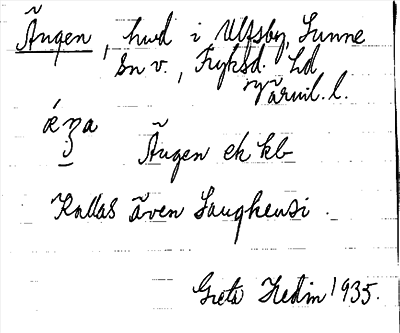 Ängen, hmd i Ulfsby, Sunne
sn v., Fryksd. hd
Värml. l.
Ängen ek kb
Kallas även
Greta Hedin 1935.